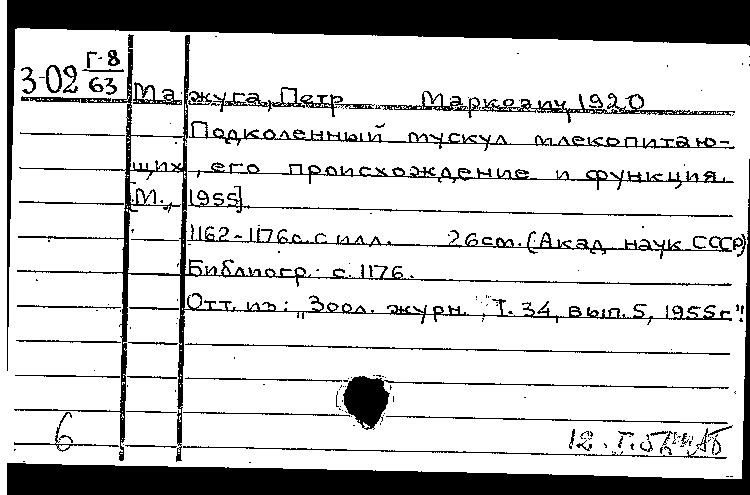 Г-8
3-02 63
Мажуга, Петр Маркович, 1920
Подколенный мускул млекопитаю-
щих, его происхождение и функция.
[М., 1955].
1162-1176с. с илл. 26cm. (Акад. наук СССР)
Библиогр: с. 1176.
Отт. из: „Зоол. журн.", Т. 34, вып. 5, 1955г".
6
12. I.